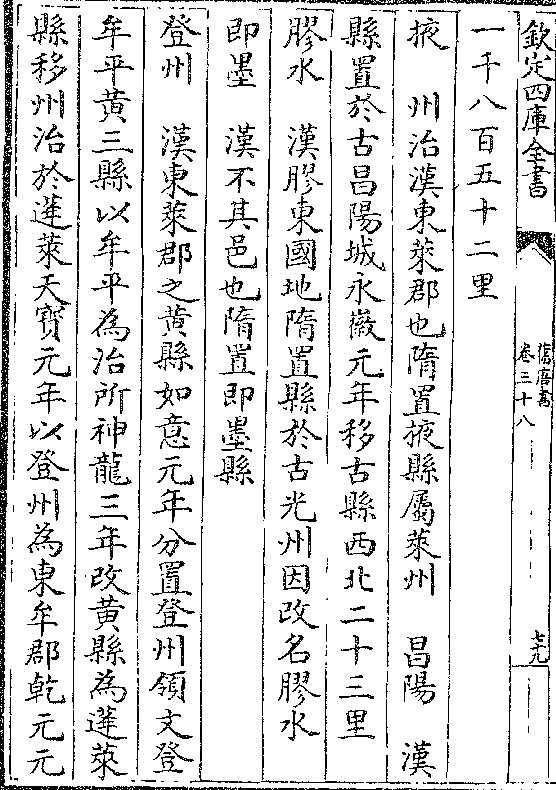 欽定四庫全書
舊唐書
卷三十八
七九
一千八百五十二里
掖　州治漢東萊郡也隋置掖縣屬萊州　昌陽　漢
縣置於古昌陽城永徽元年移古縣西北二十三里
膠水　漢膠東國地隋置縣於古光州因改名膠水
即墨　漢不其邑也隋置即墨縣
登州　漢東萊郡之黄縣如意元年分置登州領文登
牟平黄三縣以牟平為治所神龍三年改黄縣為蓬萊
縣移州治於蓬萊天寳元年以登州為東牟郡乾元元